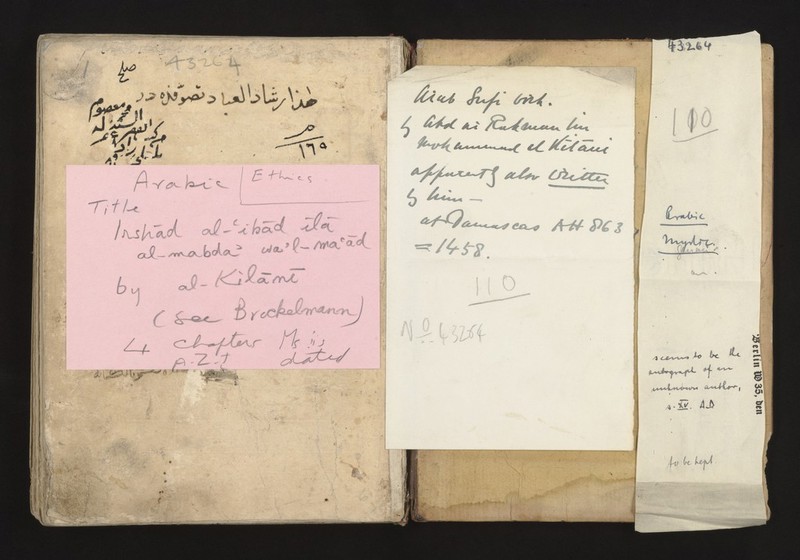 43264
صلح
هذا ارشاد العباد تصوفده در
معصوم
السيد
١٦٥
Arabic | Ethics
Title
Irshād al-ʿibād ilā
al-mabdaʾ wa'l-maʿād
by al-Kīlānī
(See Brockelmann)
4 chapters Ms is
A-Z-I dated
Arab Sufi work.
by Abd ar Rahman bin
Mohammed el Kitani
apparently also written
by him —
at Damascus AH 863,
= 1458.
110
No 43264
43264
110
Arabic
seems to be the
autograph of an
unknown author,
s. XV. A.D
to be kept
Berlin W 35, den